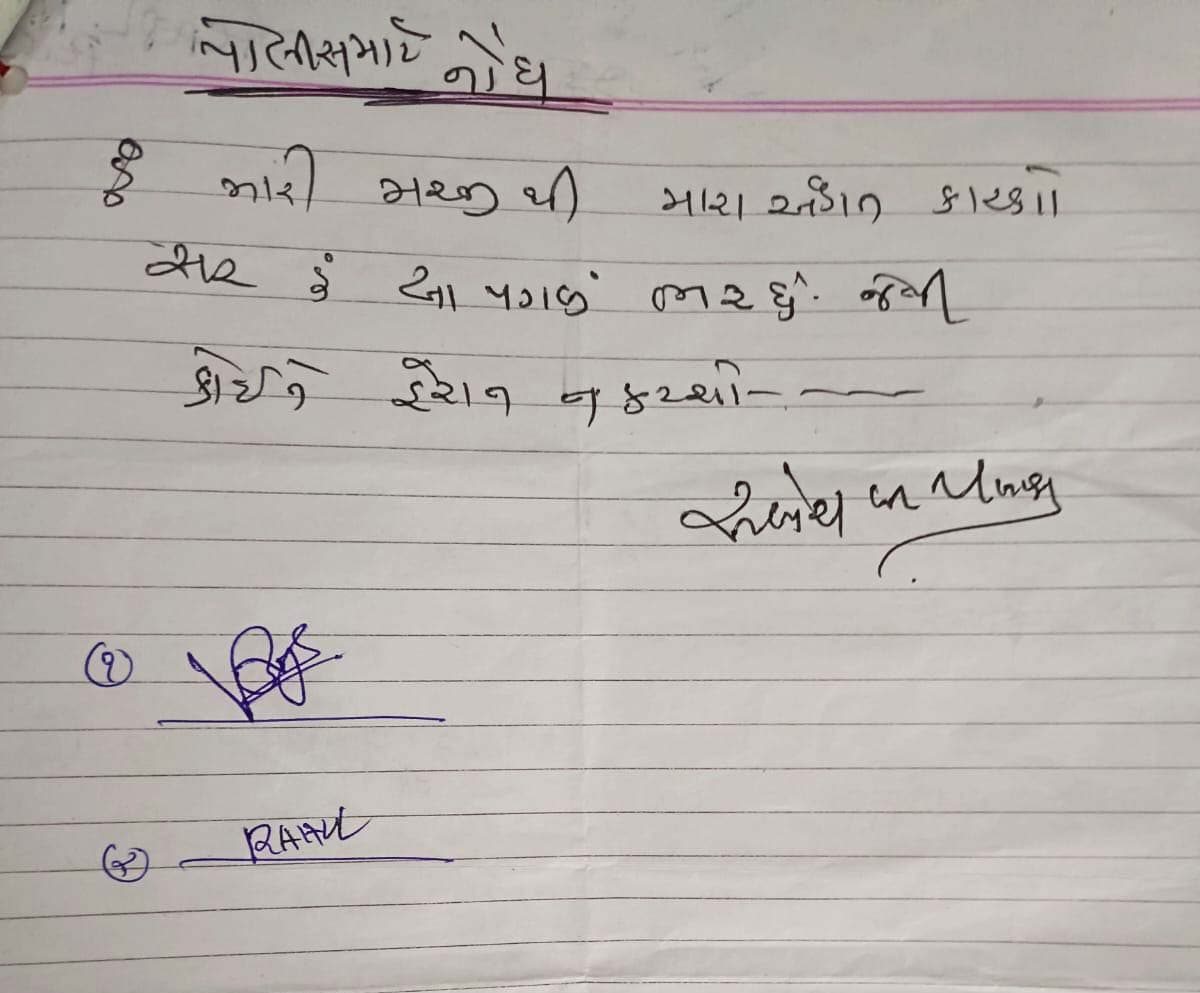 પોલીસ માટે નોંધ
હું મારી મરજી થી મારા અંગત કારણો
સર હું આ પગલું ભરૂ છું. જેથી
કોઈને હેરાન ન કરશો -
૧
૨ RAHUL